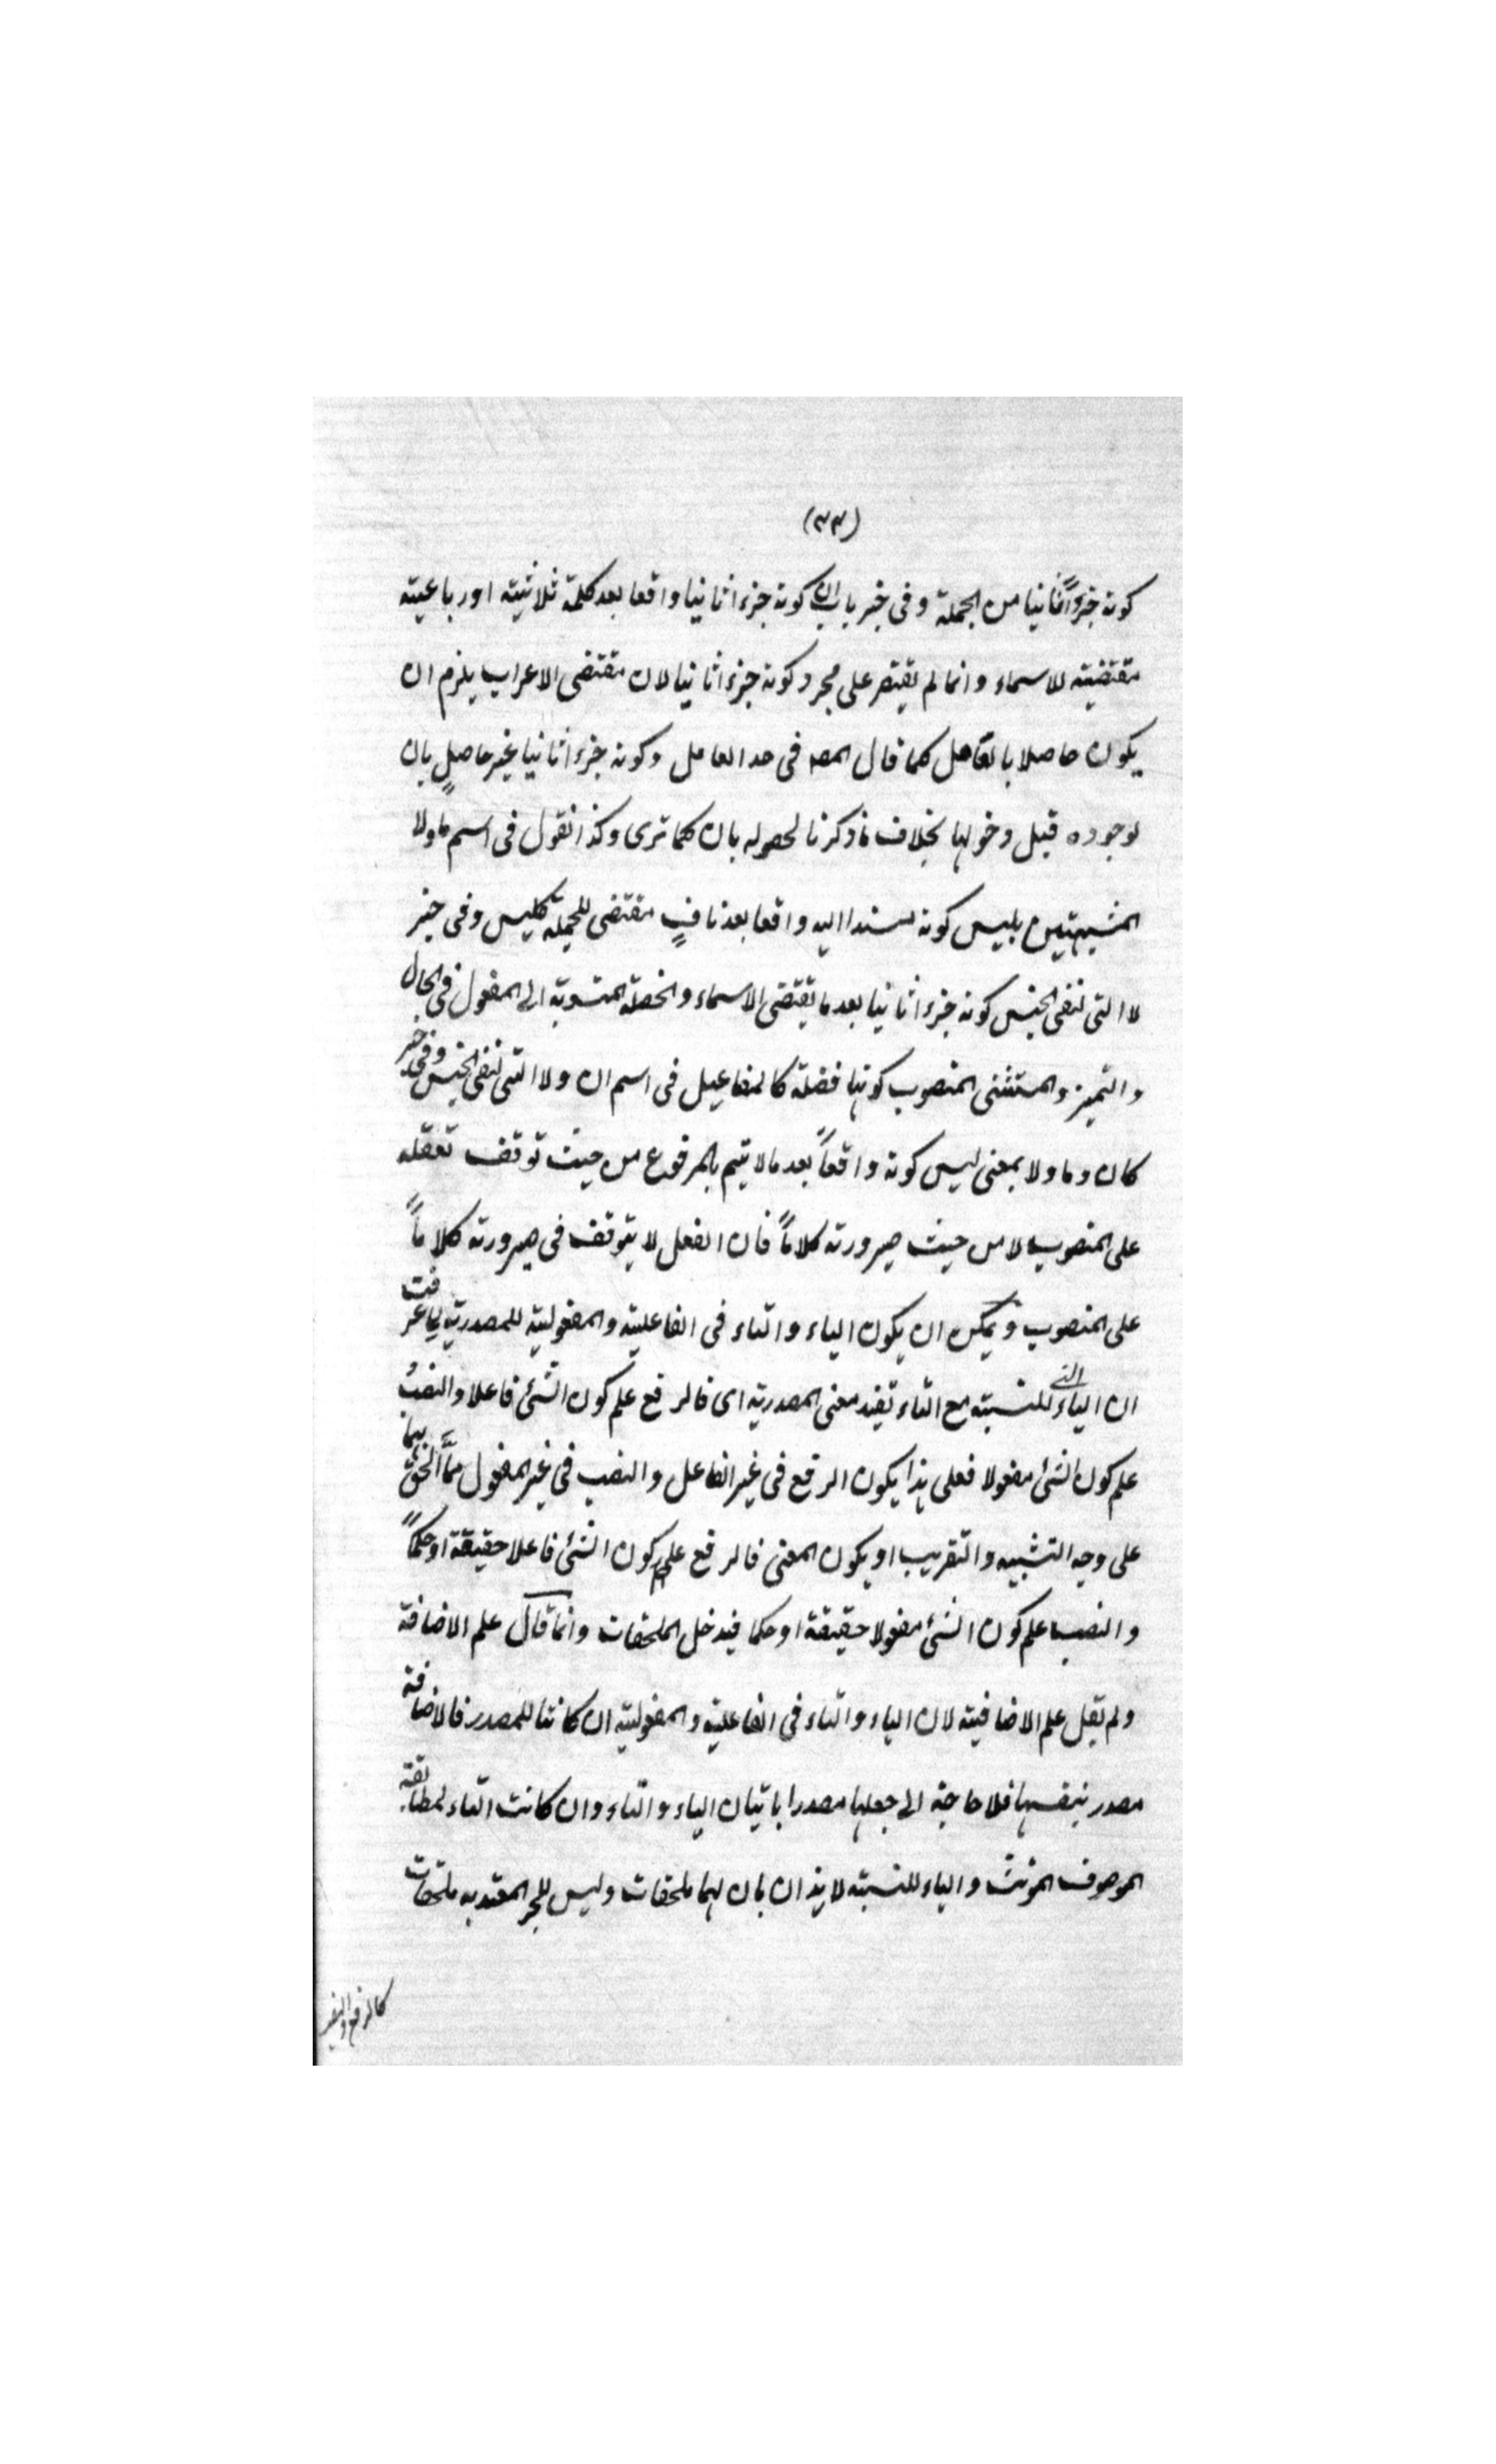 (٣٣)
كونه جزواً ثانيا من الجملة وفى خبر باب ان كونه جزءا ثانيا واقعا بعد كلمة ثلاثية او رباعية
مقتضية للاسماء وانما لم يقتصر على مجرد كونه جزءا ثانيا لان مقتضى الاعراب يلزم ان
يكون حاصلا بالعامل كما قال المصـ فى حد العامل وكونه جزءا ثانيا غير حاصلٍ بان
لوجوده قبل دخولها بخلاف ما ذكرنا لحصوله بان كما ترى وكذا نقول فى اسم ما ولا
المشبهتين بليس كونه مسندا اليه واقعا بعد نافٍ مقتضى للجملة كليس وفى خبر
لا التى لنفى الجنس كونه جزءا ثانيا بعد ما يقتضى الاسماء والخصلة المنسوبة الى المفعول فى الحال
والتميز والمستثنى المنصوب كونها فضلة كالمفاعيل فى اسم ان ولا التى لنفى الجنس وفى خبر
كان وما ولا بمعنى ليس كونه واقعاً بعد ما لا يتم بالمرفوع من حيث توقف تعقله
على المنصوب لا من حيث صيرورته كلاماً فان الفعل لا يتوقف فى صيرورته كلاماً
على المنصوب ويمكن ان يكون الياء والتاء فى الفاعلية والمفعولية للمصدرية لما عرفت
ان الياء التى للنسبة مع التاء تفيد معنى المصدرية اى فالرفع علم كون الشئ فاعلا والنصبُ
علم كون الشئ مفعولا فعلى هذا يكون الرفع فى غير الفاعل والنصب فى غير المفعول مما الحق بهما
على وجه التشبيه والتقريب او يكون المعنى فالرفع علم كون الشئ فاعلا حقيقة او حكماً
والنصب علم كون الشئ مفعولا حقيقة او حكما فيدخل الملحقات وانما قال علم الاضافة
ولم يقل علم الاضافية لان الياء والتاء فى الفاعلية والمفعولية ان كانتا للمصدر فالاضافة
مصدر بنفسها فلا حاجة الى جعلها مصدرا باتيان الياء والتاء وان كانت التاء لمطابقة
الموصوف المؤنث والياء للنسبة لايذان بان لهما ملحقات وليس للجر المعتد به ملحقات
كالرفع والنصب